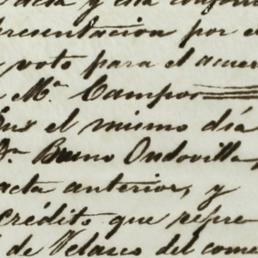 acta y esta conform
presentacion por el
voto para el acuer
Mª Campos
el mismo dia
Dn. Bruno Ondovilla,
acta anterior, y
crédito que repre
de Velasco del come